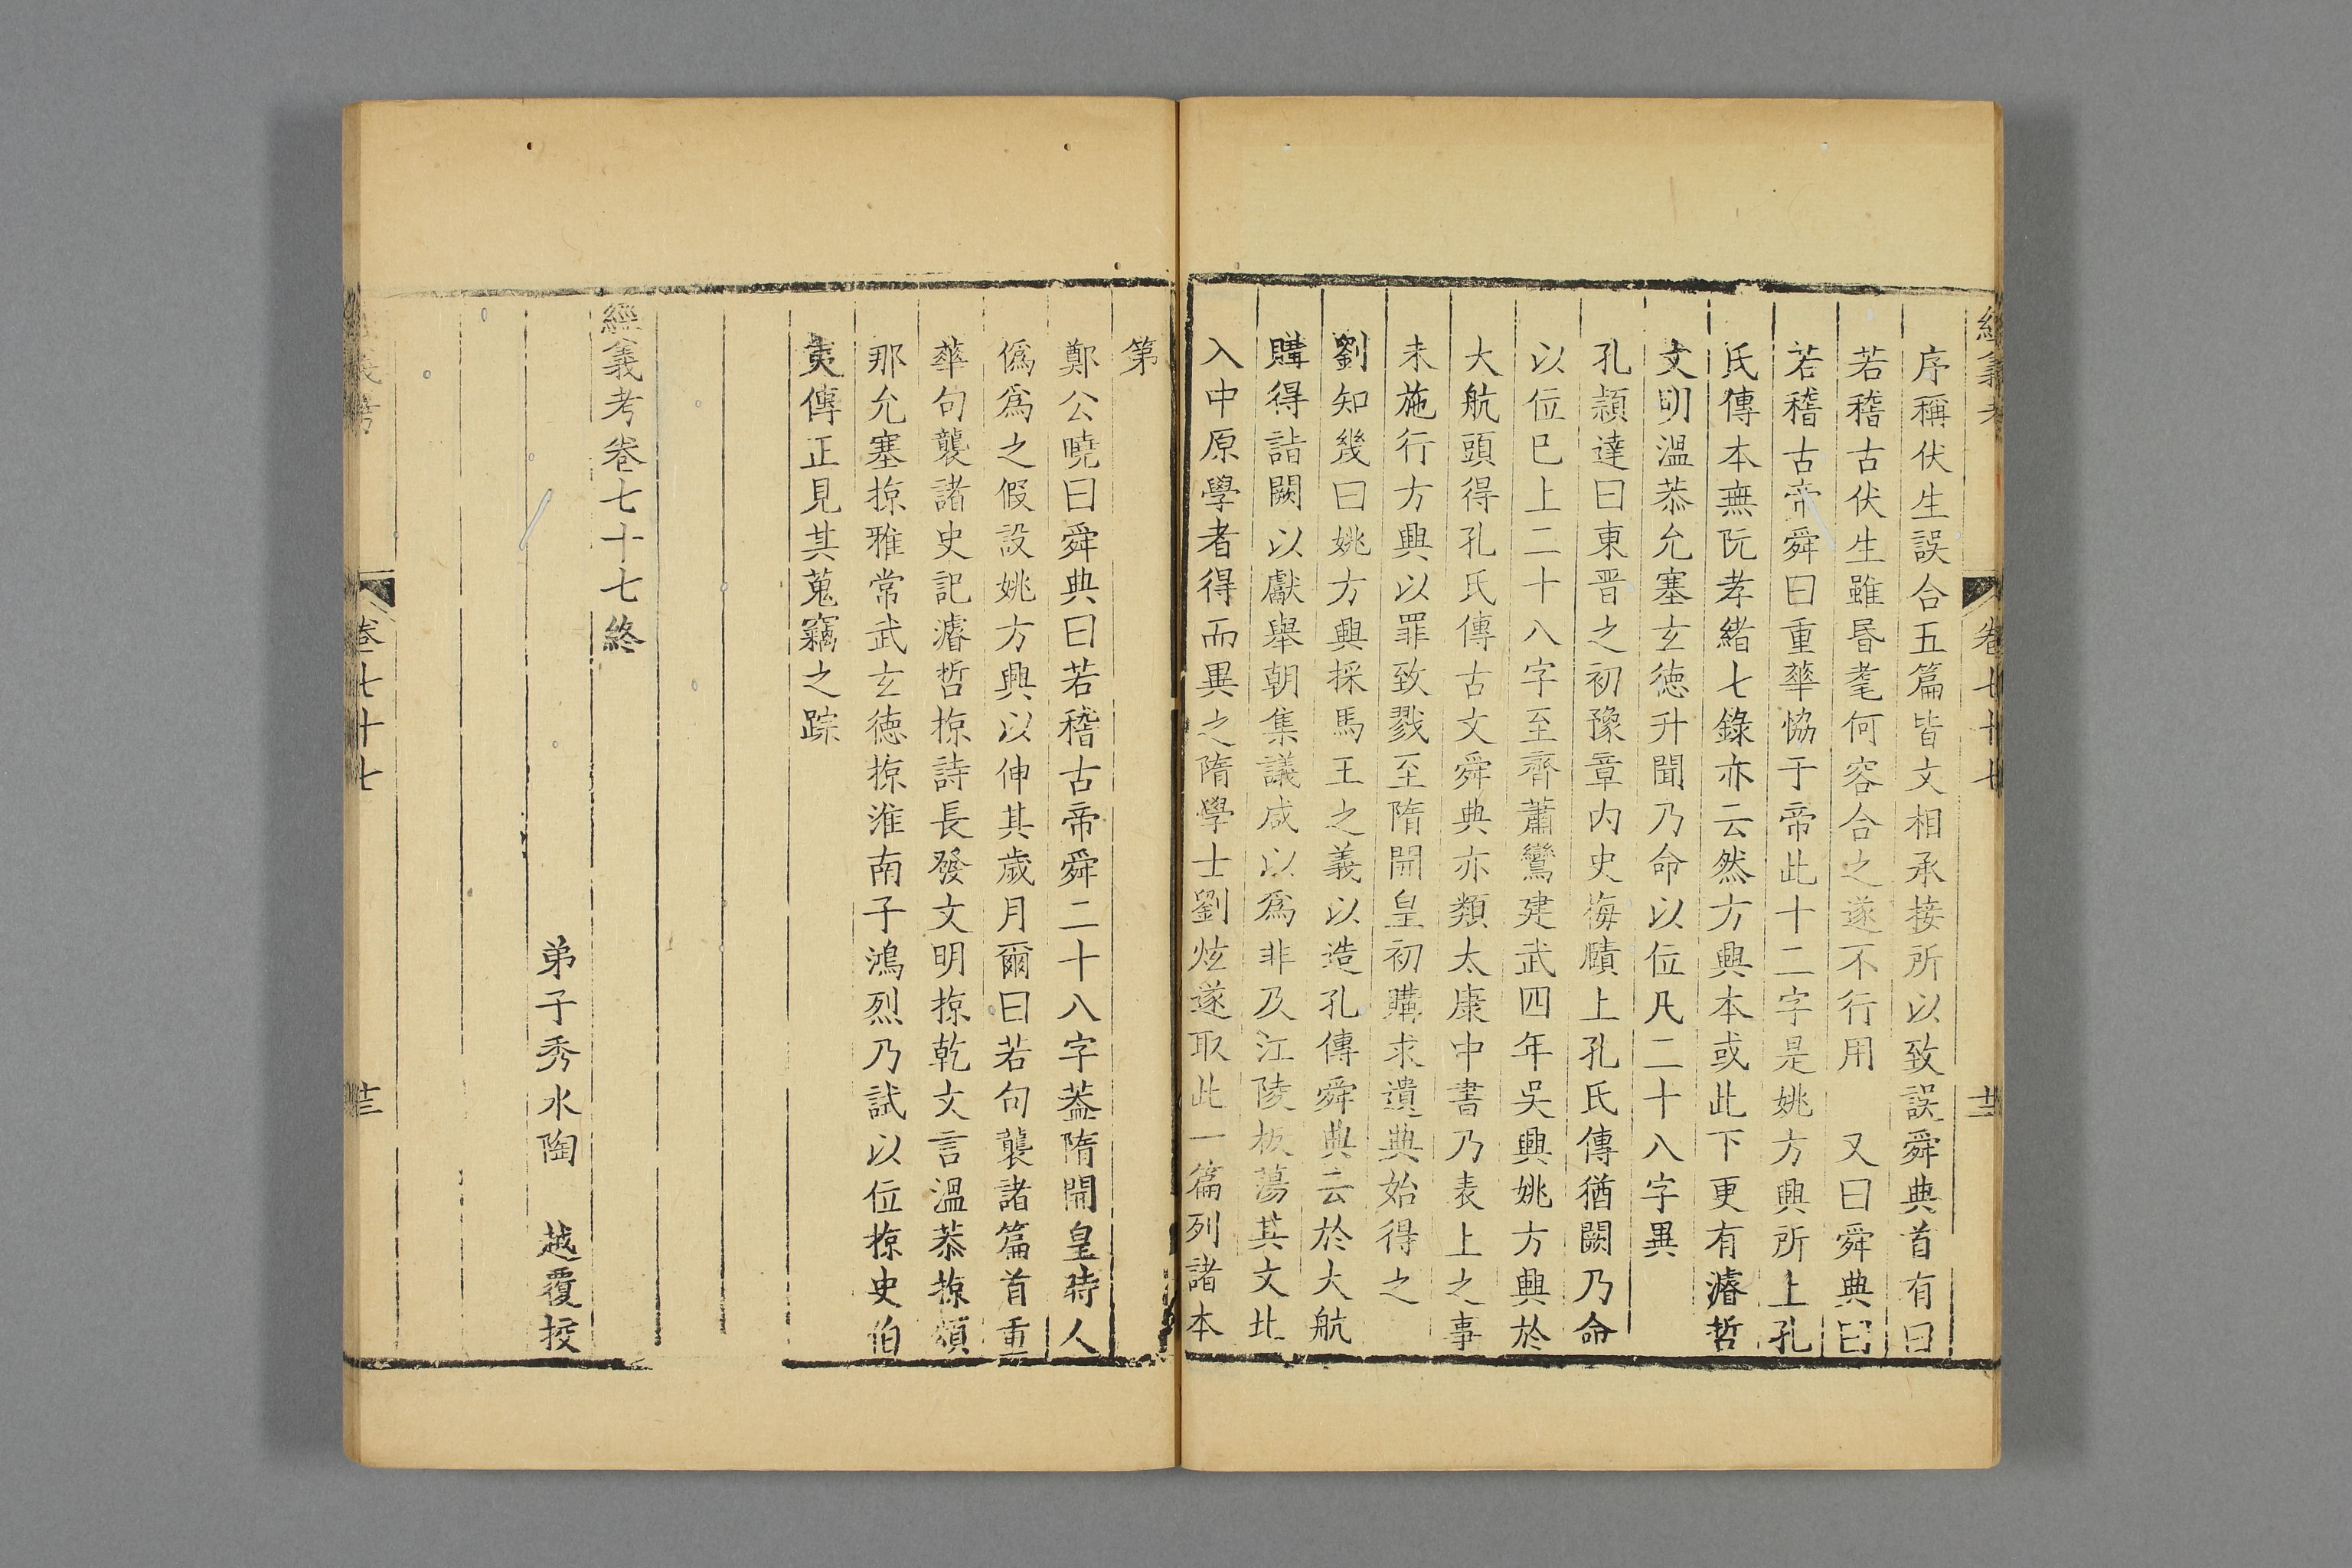 經義考 卷七十七 廿二
序稱伏生誤合五篇皆文相承接所以致誤舜典首有曰
若稽古伏生雖昬耄何容合之遂不行用 又曰舜典曰
若稽古帝舜曰重華恊于帝此十二字是姚方興所上孔
氏傳本無阮孝緒七錄亦云然方興本或此下更有濬哲
文明溫恭允塞玄德升聞乃命以位凡二十八字異
孔穎達曰東晋之初豫章内史梅賾上孔氏傳猶闕乃命
以位巳上二十八字至齊蕭鸞建武四年吳興姚方興於
大航頭得孔氏傳古文舜典亦類太康中書乃表上之事
未施行方興以罪致戮至隋開皇初購求遺典始得之
劉知幾曰姚方興採馬王之義以造孔傳舜典云於大航
購得詣闕以獻舉朝集議咸以爲非及江陵板蕩其文北
入中原學者得而異之隋學士劉炫遂取此一篇列諸本
第
鄭公曉曰舜典曰若稽古帝舜二十八字葢隋開皇時人
僞爲之假設姚方興以伸其歲月爾曰若句襲諸篇首重
華句襲諸史記濬哲掠詩長發文明掠乾文言溫恭掠頌
那允塞掠雅常武玄德掠淮南子鴻烈乃試以位掠史伯
夷傳正見其蒐竊之踪
經義考卷七十七終
弟子秀水陶 越覆挍
卷七十七 廿三